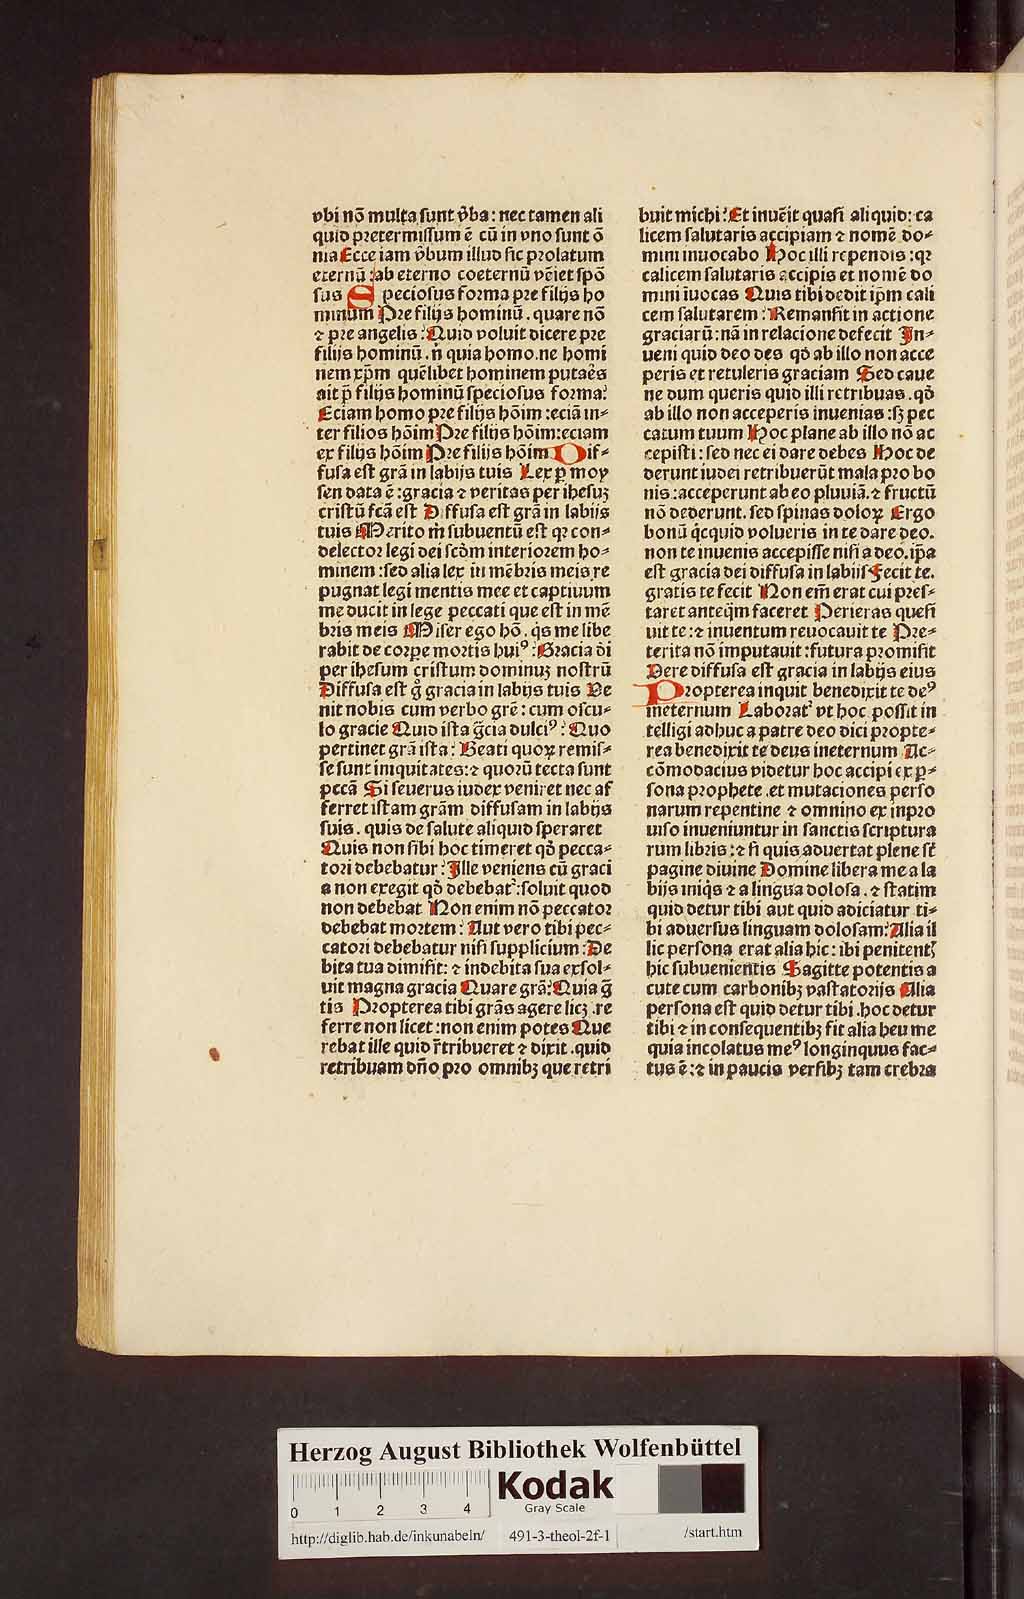 vbi nō multa sunt v̄ba : nec tamen ali
quid pretermissum ē cū in vno sunt ō
nia Ecce iam v̄bum illud sic prolatum
eternū : ab eterno coeternū vēiet spō
sus Speciosus forma pre filijs ho
minum Pre filijs hominū . quare nō
⁊ pre angelis : Quid voluit dicere pre
filijs hominū . n̄ quia homo . ne homi
nem xp̄m quēlibet hominem putaēs
ait p̄ filijs hominū speciosus forma :
Eciam homo pre filijs hōim : eciā in⸗
ter filios hōim Pre filijs hōim : eciam
ex filijs hōim Pre filijs hōim Dif⸗
fusa est grā in labijs tuis Lex ꝑ moy
sen data ē : gracia ⁊ veritas per ihesuꝫ
cristū fcā est Diffusa est grā in labijs
tuis Merito m̄ subuentū est qꝛ con⸗
delector legi dei scd̄m interiorem ho⸗
minem : sed alia lex in mēbris meis re
pugnat legi mentis mee et captiuum
me ducit in lege peccati que est in mē
bris meis Miser ego hō . q̄s me libe
rabit de corꝑe mortis huiꝰ : Gracia di
per ihesum cristum dominuꝫ nostrū
Diffusa est g̊ gracia in labijs tuis Ve
nit nobis cum verbo grē : cum oscu⸗
lo gracie Quid ista gc̄ia dulciꝰ : Quo
pertinet grā ista : Beati quoꝝ remis⸗
se sunt iniquitates : ⁊ quorū tecta sunt
pccā Si seuerus iudex veniret nec af
ferret istam grām diffusam in labijs
suis . quis de salute aliquid speraret
Quis non sibi hoc timeret qd̄ pecca⸗
tori debebatur : Ille veniens cū graci
a non exegit qd̄ debebat᷑ : soluit quod
non debebat Non enim nō peccator
debebat mortem : Aut vero tibi pec⸗
catori debebatur nisi supplicium : De
bita tua dimisit : ⁊ indebita sua exsol⸗
uit magna gracia Quare grā : Quia ḡ
tis Propterea tibi grās agere licꝫ . re
ferre non licet : non enim potes Que
rebat ille quid r̄tribueret ⁊ dixit . quid
retribuam dn̄o pro omnibꝫ que retri
buit michi : Et inuēit quasi aliquid : ca
licem salutaris accipiam ⁊ nomē do⸗
mini inuocabo Hoc illi rependis : qꝛ
calicem salutaris accipis et nomē do
mini īuocas Quis tibi dedit ip̄m cali
cem salutarem : Remansit in actione
graciarū : nā in relacione defecit In⸗
ueni quid deo des qd̄ ab illo non acce
peris et retuleris graciam Sed caue
ne dum queris quid illi retribuas . qd̄
ab illo non acceperis inuenias : sꝫ pec
catum tuum Hoc plane ab illo nō ac
cepisti : sed nec ei dare debes Hoc de
derunt iudei retribuerūt mala pro bo
nis : acceperunt ab eo pluuiā . ⁊ fructū
nō dederunt . sed spinas doloꝝ Ergo
bonū q̇cquid volueris in te dare deo .
non te inuenis accepisse nisi a deo . ip̄a
est gracia dei diffusa in labijs Fecit te .
gratis te fecit Non em̄ erat cui pres⸗
taret anteq̄m faceret Perieras quesi
uit te : ⁊ inuentum reuocauit te Pre⸗
terita nō imputauit : futura promisit
Vere diffusa est gracia in labijs eius
Propterea inquit benedixit te deꝰ
ineternum Laborat᷑ vt hoc possit in
telligi adhuc a patre deo dici propte⸗
rea benedixit te deus ineternum Ac⸗
cōmodacius videtur hoc accipi ex ꝑ⸗
sona prophete . et mutaciones perso
narum repentine ⁊ omnino ex inpro
uiso inueniuntur in sanctis scriptura
rum libris : ⁊ si quis aduertat plene st̄
pagine diuine Domine libera me a la
bijs iniq̄s ⁊ a lingua dolosa . ⁊ statim
quid detur tibi aut quid adiciatur ti⸗
bi aduersus linguam dolosam : Alia il
lic persona erat alia hic : ibi penitentꝭ
hic subuenientis Sagitte potentis a
cute cum carbonibꝫ vastatorijs Alia
persona est quid detur tibi . hoc detur
tibi ⁊ in consequentibꝫ fit alia heu me
quia incolatus meꝰ longinquus fac⸗
tus ē : ⁊ in paucis versibꝫ tam crebra
Herzog August Bibliothek Wolfenbüttel
0 1 2 3 4
Kodak
Gray Scale
http://diglib.hab.de/inkunabeln/ 491-3-theol-2f-1 /start.htm